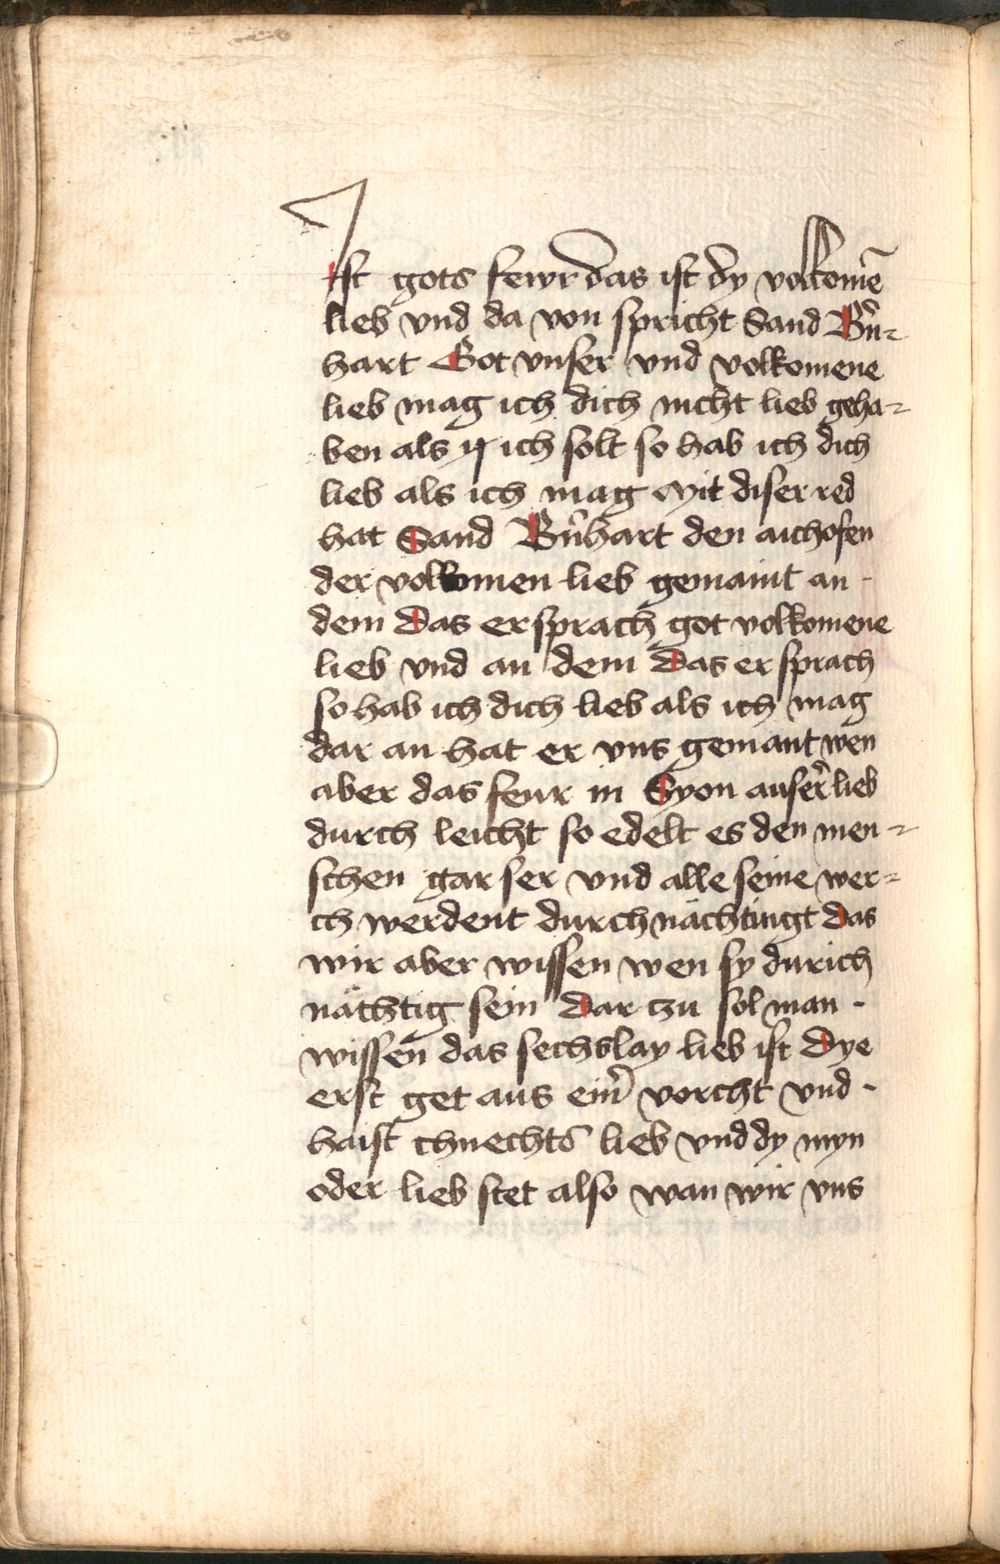 Ist gots fewr das ist dy volkomē
lieb vnd da von spricht Sand Bn̄-
hart Got vnser vnd volkomene
lieb mag ich dich nicht lieb geha-
ben als ich solt so hab ich dich
lieb als ich mag Mit diser red
hat Sand Bn̄hart den aichofen
der volkomen lieb gemaint an
dem das er sprach got volkomene
lieb vnd an dem das er sprach
so hab ich dich lieb als ich mag
dar an hat er vns gemant wen
aber das feur in Syon auser̄ lieb
durch leicht so edelt es den men-
schen gar ser vnd alle seine wer-
ch werdent durchnächtingt das
wir aber wissen wen sy durich
nächtig sein Dar czu sol man
wissen das sechslay lieb ist Dye
erst get aus ein̄ vorcht vnd
haist chnechts lieb vnd dy myn
oder lieb stet also wan wir vns